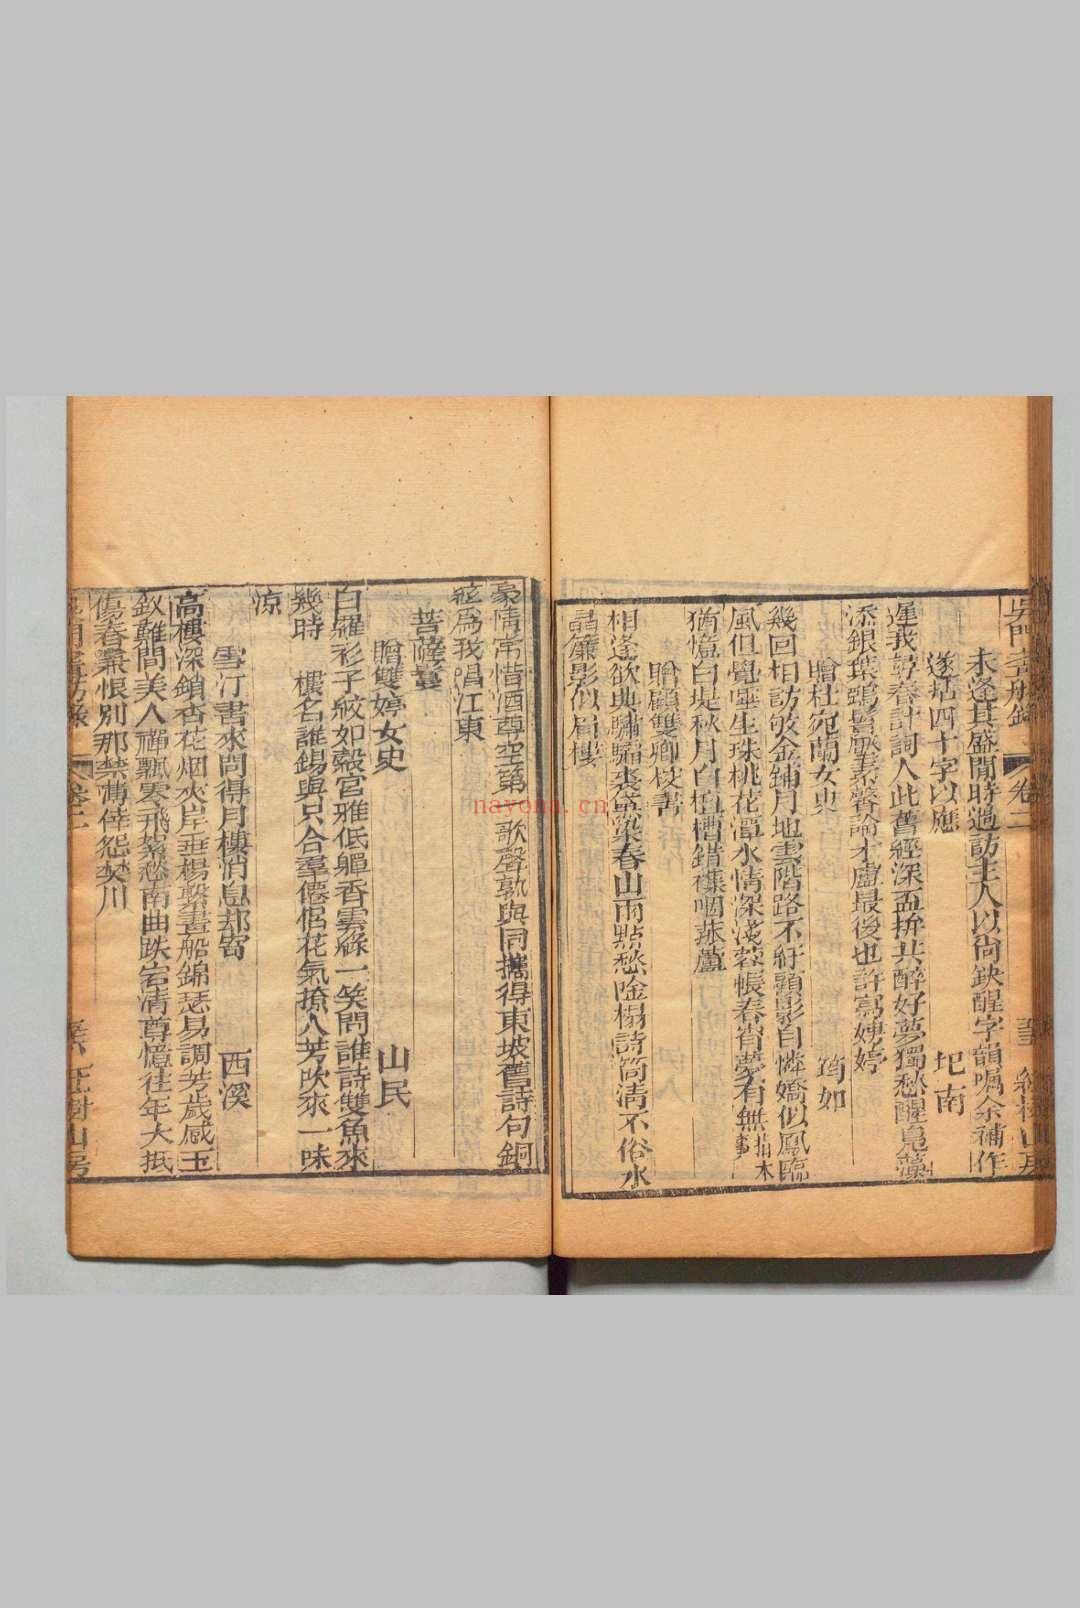 未逢其盛閒時過訪主人以尚缺醒字韻囑余補作
遂拈四十字以應
圯南
遲我尋春計詞人此舊經深盃拚共醉好夢獨愁醒鳧藻
添銀葉鴉鬟嚴素馨論才盧最後也許寫娉婷
贈杜宛蘭女史
筠如
幾回相訪敂金鋪月地雲階路不紆顧影自憐嬌似鳳臨
風但覺唾生珠桃花潭水情深淺蓉帳春宵夢有無指木事
猶憶白堤秋月白檀槽錯襍咽菰蘆
贈顧雙卿校書
相逢欲典驌驦裘螺染春山兩點愁陰榻詩筒清不俗水
晶簾影似眉樓
豪情常惜酒尊空第一歌聲孰與同攜得東坡舊詩句銅
絃為我唱江東
菩薩鬘
贈雙婷女史
山民
白羅衫子紋如縠宮雅低嚲香雲綠一笑問誰詩雙魚來
幾時 樓名誰錫與只合羣僊侶花氣撩人芳吹來一味
涼
雪汀書來問得月樓消息却寄
西溪
高樓深鎖杏花烟夾岸垂楊繫畫船錦瑟易調芳歲感玉
釵難問美人禪飄零飛絮愁南曲跌宕清尊憶往年大抵
傷春兼恨別那禁薄倖怨樊川
卷二
navona.cn